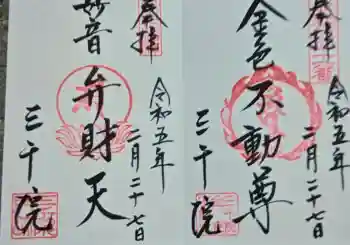 奉拝
金色不動尊
令和五年
二月二十七日
三千院
奉拝
妙音弁財天
令和五年
二月二十七日
三千院